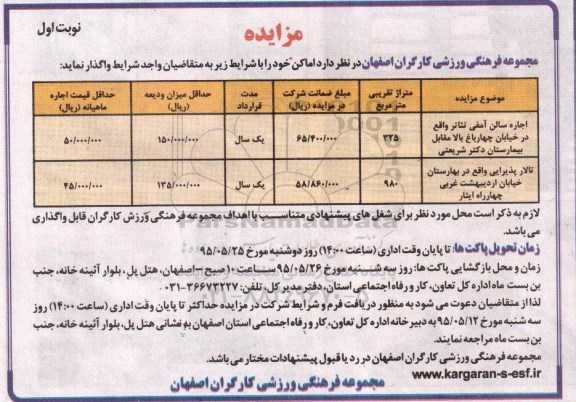 مزایده
نوبت اول
مجموعه فرهنگی ورزشی کارگران اصفهان در نظر دارد اماکن خود را با شرایط زیر به متقاضیان واجد شرایط واگذار نماید:
موضوع مزایده متراژ تقریبی متر مربع مبلغ ضمانت شرکت در مزایده (ریال) مدت قرارداد حداقل میزان ودیعه (ریال) حداقل قیمت اجاره ماهیانه (ریال)
اجاره سالن آمفی تئاتر واقع در خیابان چهارباغ بالا مقابل بیمارستان دکتر شریعتی ۳۳۵ ۶۵/۴۰۰/۰۰۰ یک سال ۱۵۰/۰۰۰/۰۰۰ ۵۰/۰۰۰/۰۰۰
تالار پذیرایی واقع در بهارستان خیابان اردیبهشت غربی چهارراه ایثار ۹۸۰ ۵۸/۸۶۰/۰۰۰ یک سال ۱۳۵/۰۰۰/۰۰۰ ۴۵/۰۰۰/۰۰۰
لازم به ذکر است محل مورد نظر برای شغل های پیشنهادی متناسب با اهداف مجموعه فرهنگی ورزش کارگران قابل واگذاری
می باشد.
زمان تحویل پاکت ها: تا پایان وقت اداری (ساعت ۱۴:۰۰) روز دوشنبه مورخ ۹۵/۰۵/۲۵
زمان و محل بازگشایی پاکت ها: روز سه شنبه مورخ ۹۵/۰۵/۲۶ ساعت ۱۰ صبح - اصفهان، هتل پل، بلوار آئینه خانه، جنب
بن بست ماه اداره کل تعاون، کار و رفاه اجتماعی استان، دفتر مدیر کل، تلفن: ۳۶۶۷۳۲۲۷-۰۳۱
لذا از متقاضیان دعوت می شود به منظور دریافت فرم و شرایط شرکت در مزایده حداکثر تا پایان وقت اداری (ساعت ۱۴:۰۰) روز
سه شنبه مورخ ۹۵/۰۵/۱۲ به دبیرخانه اداره کل تعاون، کار و رفاه اجتماعی استان اصفهان به نشانی هتل پل، بلوار آئینه خانه، جنب
بن بست ماه مراجعه نمایند.
مجموعه فرهنگی ورزشی کارگران اصفهان در رد یا قبول پیشنهادات مختار می باشد.
www.kargaran-s-esf.ir
مجموعه فرهنگی ورزشی کارگران اصفهان
ParsNamadData